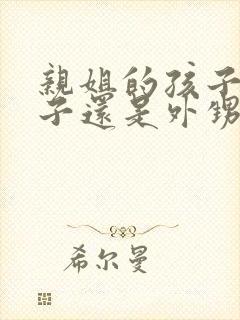 親姐的孩子
子還是外甥
希尔曼